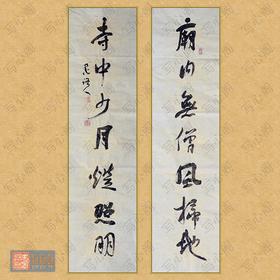 廟内無僧風掃地
寺中少月燈照明